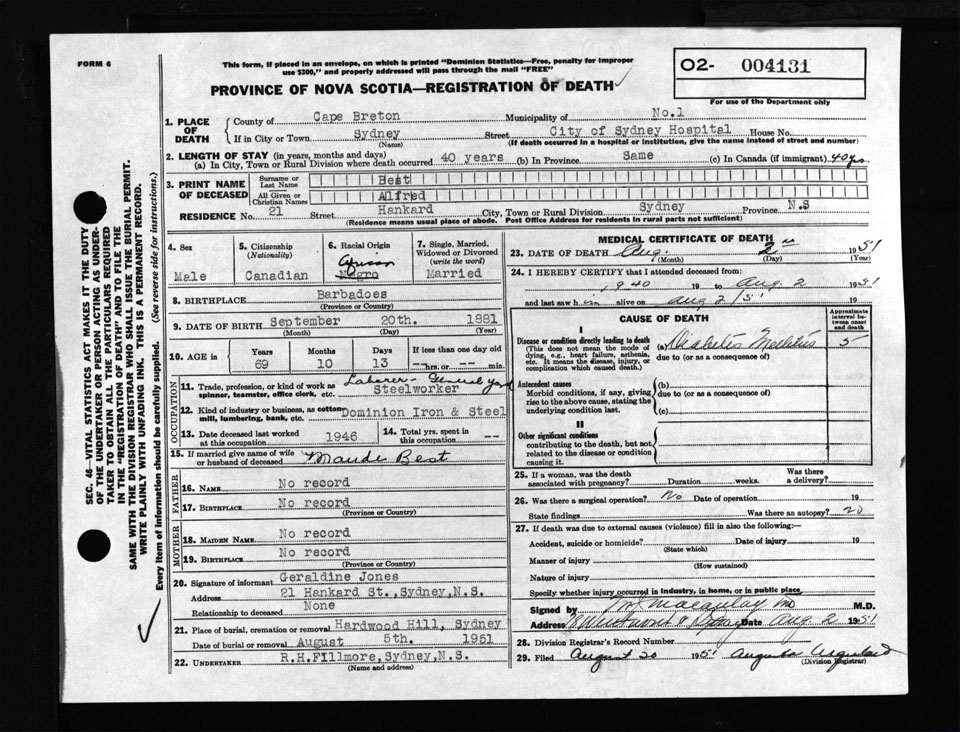 FORM 6
This form, if placed in an envelope, on which is printed "Dominion Statistics—Free, penalty for improper
use $300," and properly addressed will pass through the mail "FREE"
O2- 004131
For use of the Department only
PROVINCE OF NOVA SCOTIA—REGISTRATION OF DEATH
1. PLACE OF DEATH
County of Cape Breton Municipality of No.1
If in City or Town Sydney Street City of Sydney Hospital House No.
(Name) (If death occurred in a hospital or institution, give the name instead of street and number)
2. LENGTH OF STAY (in years, months and days)
(a) In City, Town or Rural Division where death occurred 40 years (b) In Province Same (c) In Canada (if immigrant) 40 yrs
3. PRINT NAME OF DECEASED
Surname or Last Name Best
All Given or Christian Names Alfred
RESIDENCE No. 21 Street Hankard City, Town or Rural Division Sydney Province N.S
(Residence means usual place of abode. Post Office Address for residents in rural parts not sufficient)
4. Sex
Male
5. Citizenship
(Nationality)
Canadian
6. Racial Origin
African
Negro
7. Single, Married, Widowed or Divorced
(write the word)
Married
8. BIRTHPLACE Barbadoes
(Province or Country)
9. DATE OF BIRTH September 20th. 1881
(Month) (Day) (Year)
10. AGE in
Years Months Days If less than one day old
69 10 13 -- hrs. or -- min.
OCCUPATION
11. Trade, profession, or kind of work as spinner, teamster, office clerk, etc. Laborer - General yard
Steelworker
12. Kind of industry or business, as cotton mill, lumbering, bank, etc. Dominion Iron & Steel
13. Date deceased last worked at this occupation 1946
14. Total yrs. spent in this occupation --
15. If married give name of wife or husband of deceased Maude Best
FATHER
16. NAME No record
17. BIRTHPLACE No record
(Province or Country)
MOTHER
18. MAIDEN NAME No record
19. BIRTHPLACE No record
(Province or Country)
20. Signature of informant Geraldine Jones
Address 21 Hankard St., Sydney, N.S.
Relationship to deceased None
21. Place of burial, cremation or removal Hardwood Hill, Sydney
Date of burial or removal August 5th. 1951
22. UNDERTAKER R.H.Fillmore, Sydney, N.S.
(Name and address)
MEDICAL CERTIFICATE OF DEATH
23. DATE OF DEATH Aug. 2nd 1951
(Month) (Day) (Year)
24. I HEREBY CERTIFY that I attended deceased from:
1940 19 to Aug. 2 1951
and last saw him alive on Aug 2/51 19
CAUSE OF DEATH
Approximate interval between onset and death
I
Disease or condition directly leading to death
(This does not mean the mode of dying, e.g., heart failure, asthenia, etc. It means the disease, injury, or complication which caused death.)
(a) Diabetes Mellitus 5
due to (or as a consequence of)
Antecedent causes
Morbid conditions, if any, giving rise to the above cause, stating the underlying condition last.
(b)
due to (or as a consequence of)
(c)
II
Other significant conditions
contributing to the death, but not related to the disease or condition causing it.
25. If a woman, was the death associated with pregnancy? Duration weeks. Was there a delivery?
26. Was there a surgical operation? No Date of operation 19
State findings Was there an autopsy? no
27. If death was due to external causes (violence) fill in also the following:—
Accident, suicide or homicide? Date of injury 19
(State which)
Manner of injury
(How sustained)
Nature of injury
Specify whether injury occurred in industry, in home, or in public place,
Signed by M. Macaulay MD M.D.
Address Date Aug 2 1951
28. Division Registrar's Record Number
29. Filed August 20 1951 Augusta
(Division Registrar)
SEC. 46—VITAL STATISTICS ACT MAKES IT THE DUTY
OF THE UNDERTAKER OR PERSON ACTING AS UNDER-
TAKER TO OBTAIN ALL THE PARTICULARS REQUIRED
IN THE "REGISTRATION OF DEATH" AND TO FILE THE
SAME WITH THE DIVISION REGISTRAR WHO SHALL ISSUE THE BURIAL PERMIT.
WRITE PLAINLY WITH UNFADING INK. THIS IS A PERMANENT RECORD.
Every item of information should be carefully supplied. (See reverse side for instructions.)